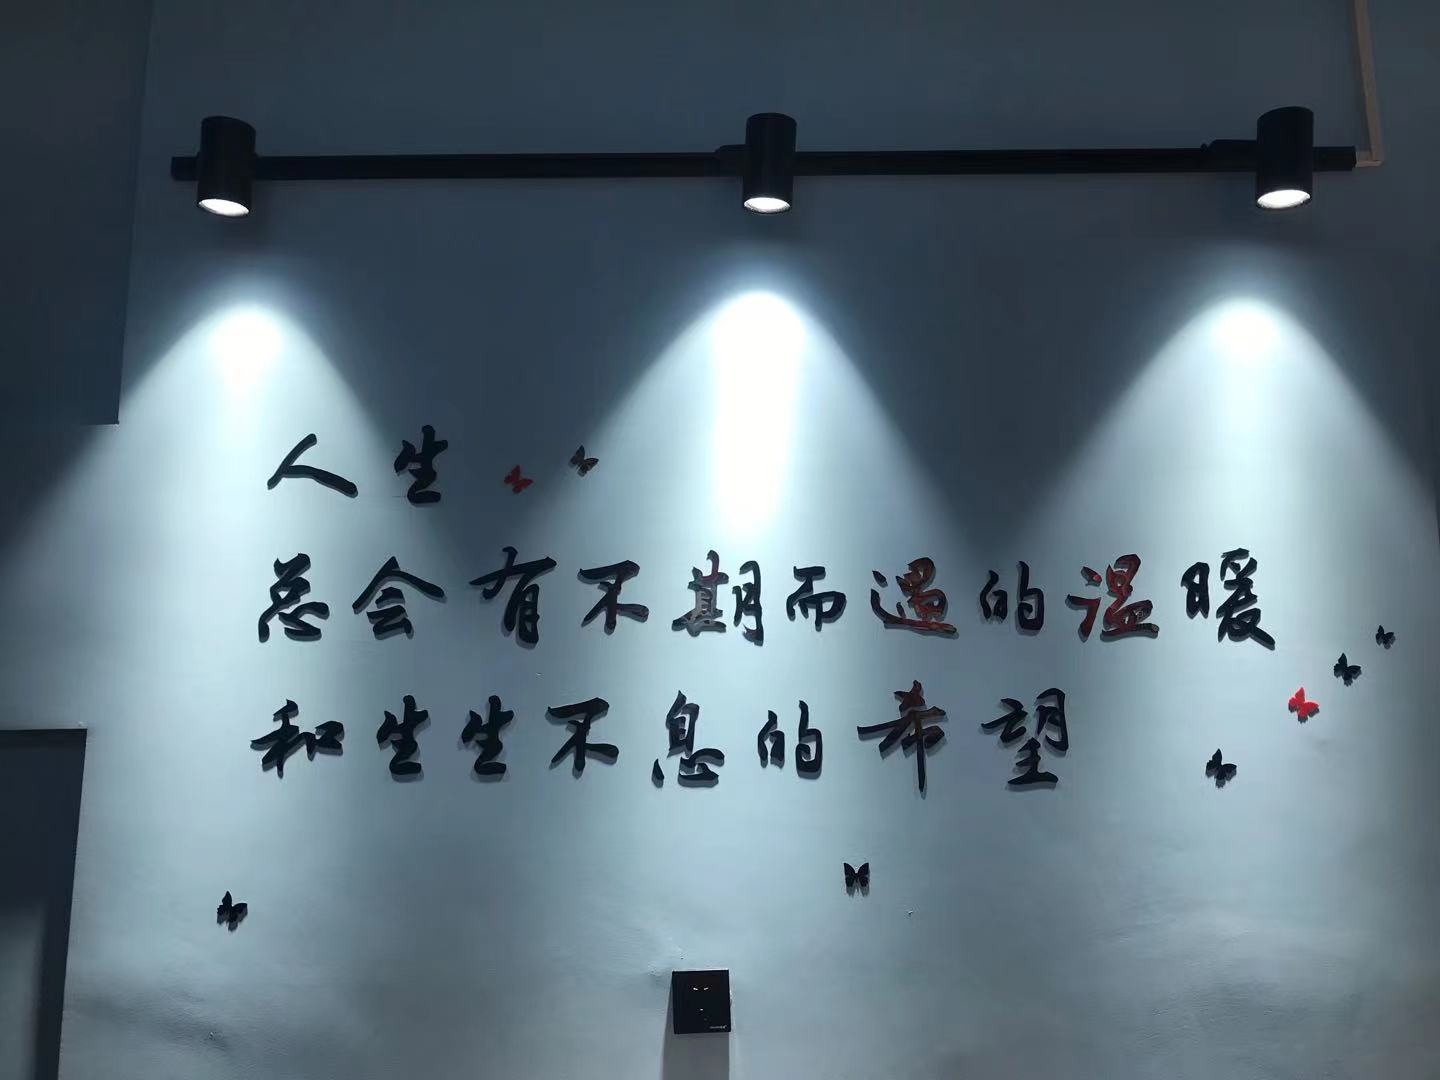 人生
总会有不期而遇的温暖
和生生不息的希望